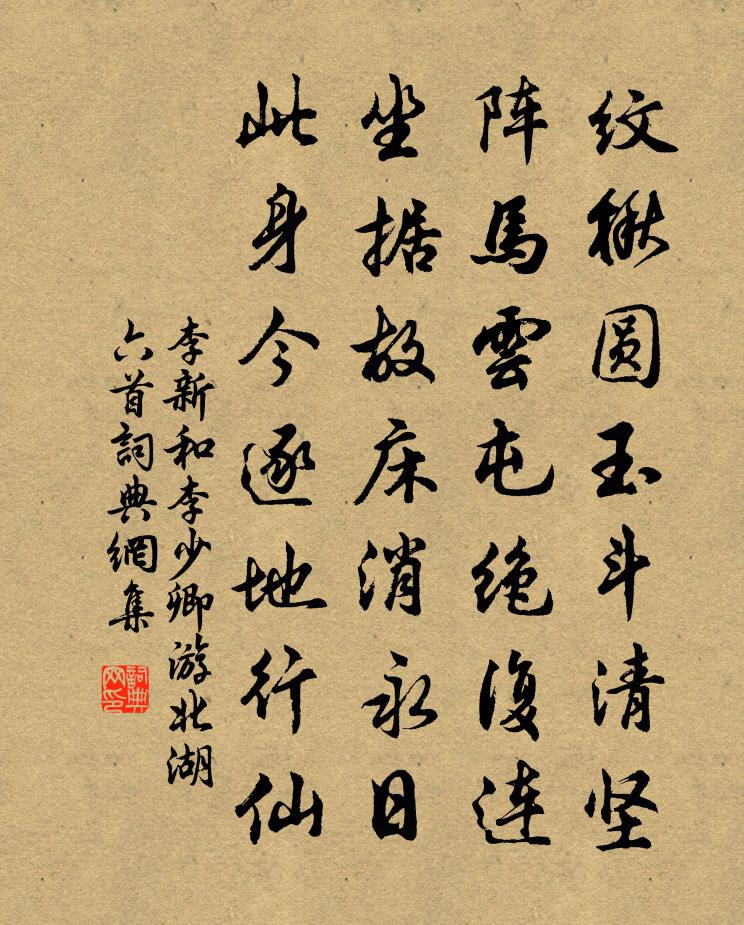 纹楸圆玉斗清坚
阵馬雲屯绝復连
坐据故床消永日
此身今逐地行仙
李新和李少卿游北湖
六首詞典網集
詞典网印